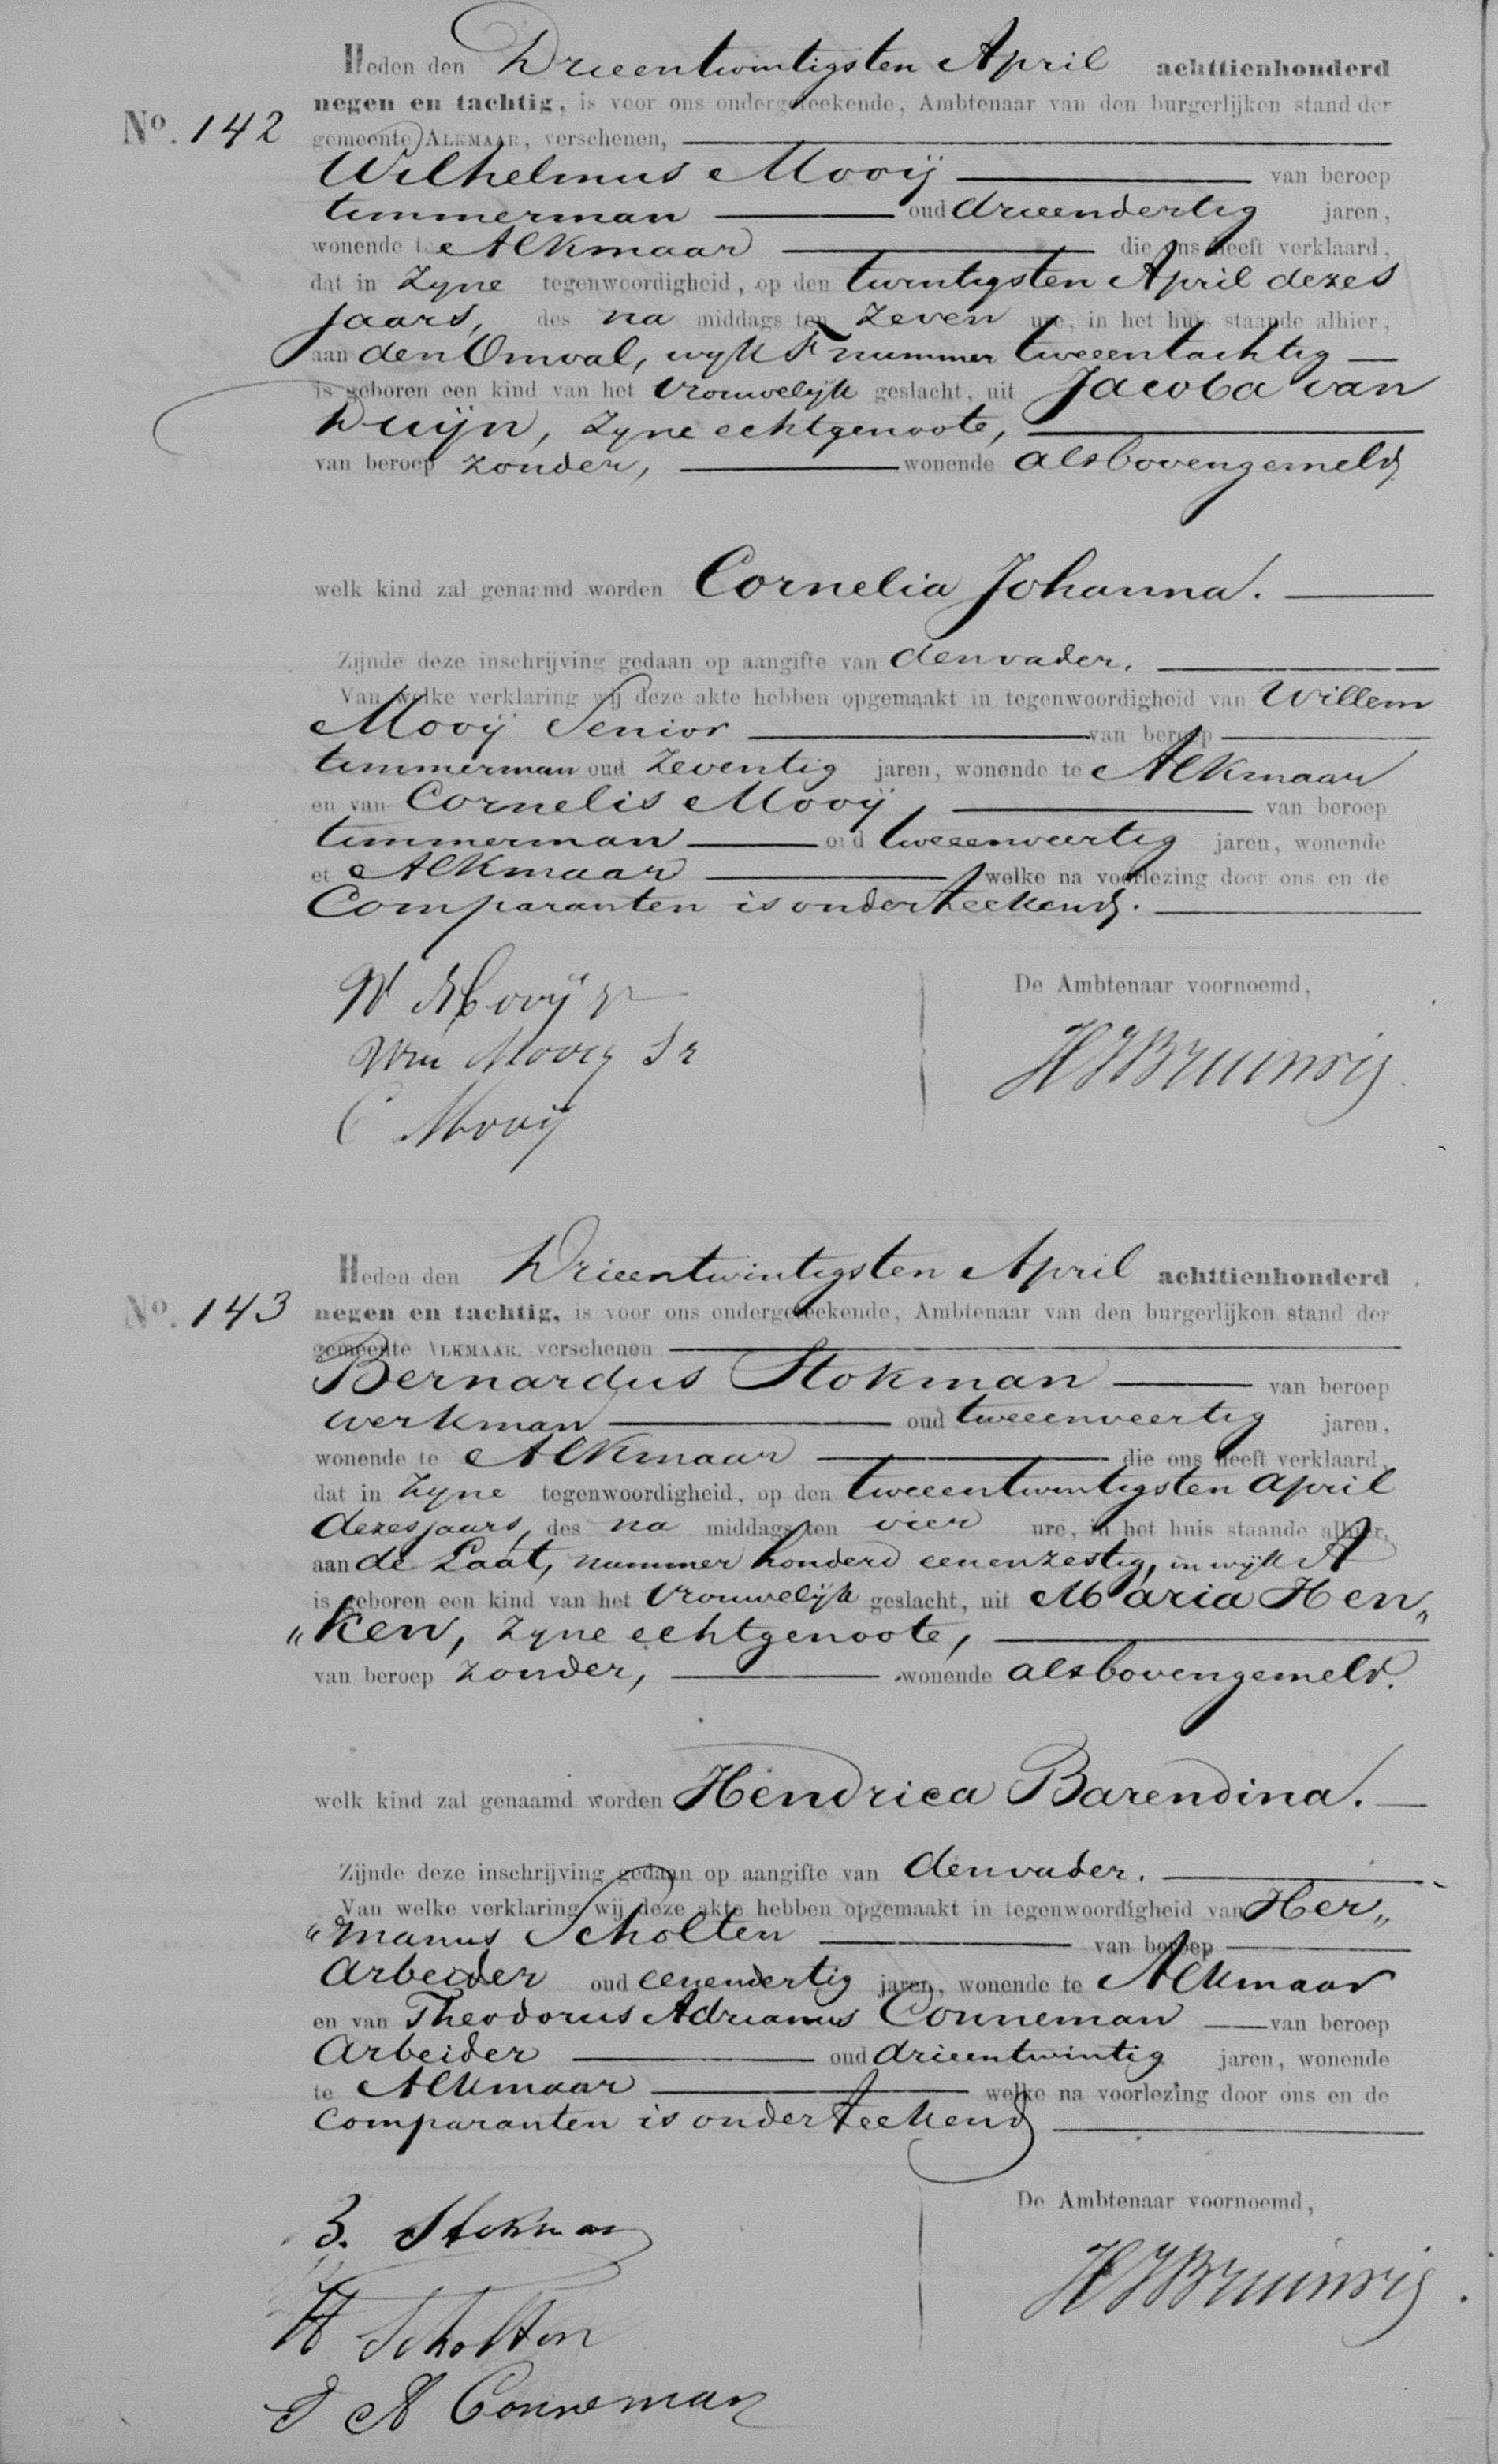 Heden den Drieentwintigsten April achttienhonderd
negen en tachtig, is voor ons ondergeteekende, Ambtenaar van den burgerlijken stand der
No. 142 gemeente ALKMAAR, verschenen,
Wilhelmus Mooij van beroep
timmerman oud drieendertig jaren,
wonende te Alkmaar die ons heeft verklaard,
dat in zyne tegenwoordigheid, op den twintigsten April dezes
jaars, des na middags ten zeven ure, in het huis staande alhier,
aan den Omval, wyk F nummer tweeentachtig
is geboren een kind van het vrouwelijk geslacht, uit Jacoba van
Duijn, zyne echtgenoote,
van beroep zonder, wonende alsbovengemeld
welk kind zal genaamd worden Cornelia Johanna.
Zijnde deze inschrijving gedaan op aangifte van den vader.
Van welke verklaring wij deze akte hebben opgemaakt in tegenwoordigheid van Willem
Mooij Senior van beroep
timmerman oud zeventig jaren, wonende te Alkmaar
en van Cornelis Mooij, van beroep
timmerman oud tweeenveertig jaren, wonende
et Alkmaar welke na voorlezing door ons en de
Comparanten is onderteekend.
De Ambtenaar voornoemd,
W Mooij Jr
Wm Mooij Sr
HJBruinvis
C Mooij
Heden den Drieentwintigsten April achttienhonderd
No. 143 negen en tachtig, is voor ons ondergeteekende, Ambtenaar van den burgerlijken stand der
gemeente ALKMAAR, verschenen
Bernardus Stokman van beroep
werkman oud tweeenveertig jaren,
wonende te Alkmaar die ons heeft verklaard,
dat in zyne tegenwoordigheid, op den tweeentwintigsten april
dezes jaars, des na middags ten vier ure, in het huis staande alhier,
aan de Laat, nummer honderd eenenzestig, in wijk A
is geboren een kind van het vrouwelijk geslacht, uit Maria Hen„
„ken, zyne echtgenoote,
van beroep zonder, wonende alsbovengemeld.
welk kind zal genaamd worden Hendrica Barendina.
Zijnde deze inschrijving gedaan op aangifte van den vader.
Van welke verklaring wij deze akte hebben opgemaakt in tegenwoordigheid van Her„
„manus Scholten van beroep
Arbeider oud eenendertig jaren, wonende te Alkmaar
en van Theodorus Adrianus Conneman van beroep
Arbeider oud drieentwintig jaren, wonende
te Alkmaar welke na voorlezing door ons en de
comparanten is onderteekend
De Ambtenaar voornoemd,
B. Stokman
HJBruinvis
H Scholten
T A Conneman